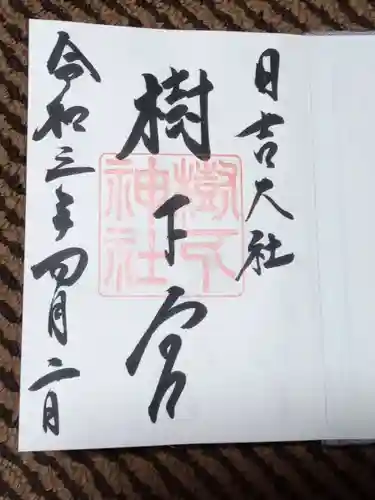 日吉大社
樹下宮
樹下
神社
令和三年四月二日